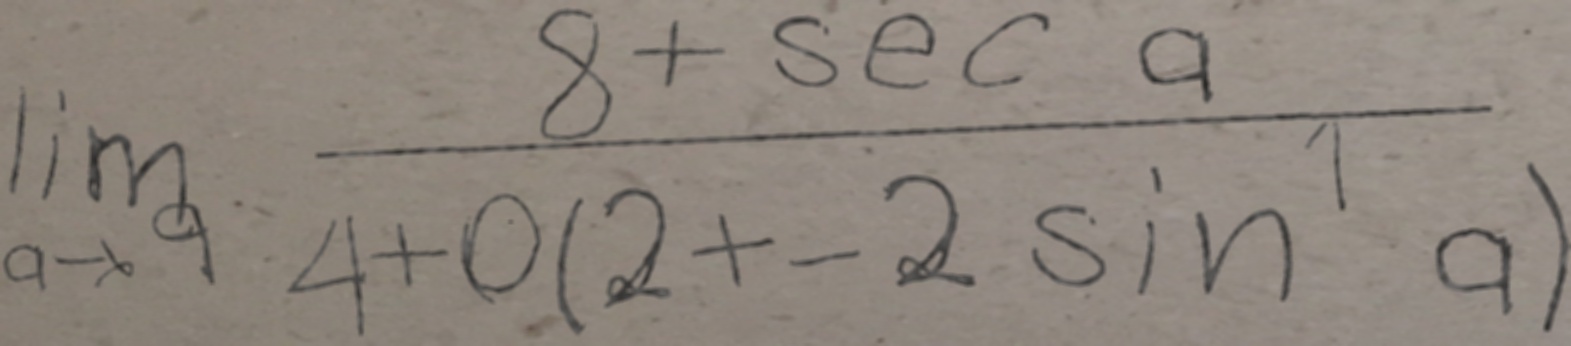 \lim_{a \to 9} \frac{8 + \sec a}{4 + 0(2 + -2 \sin^1 a)}